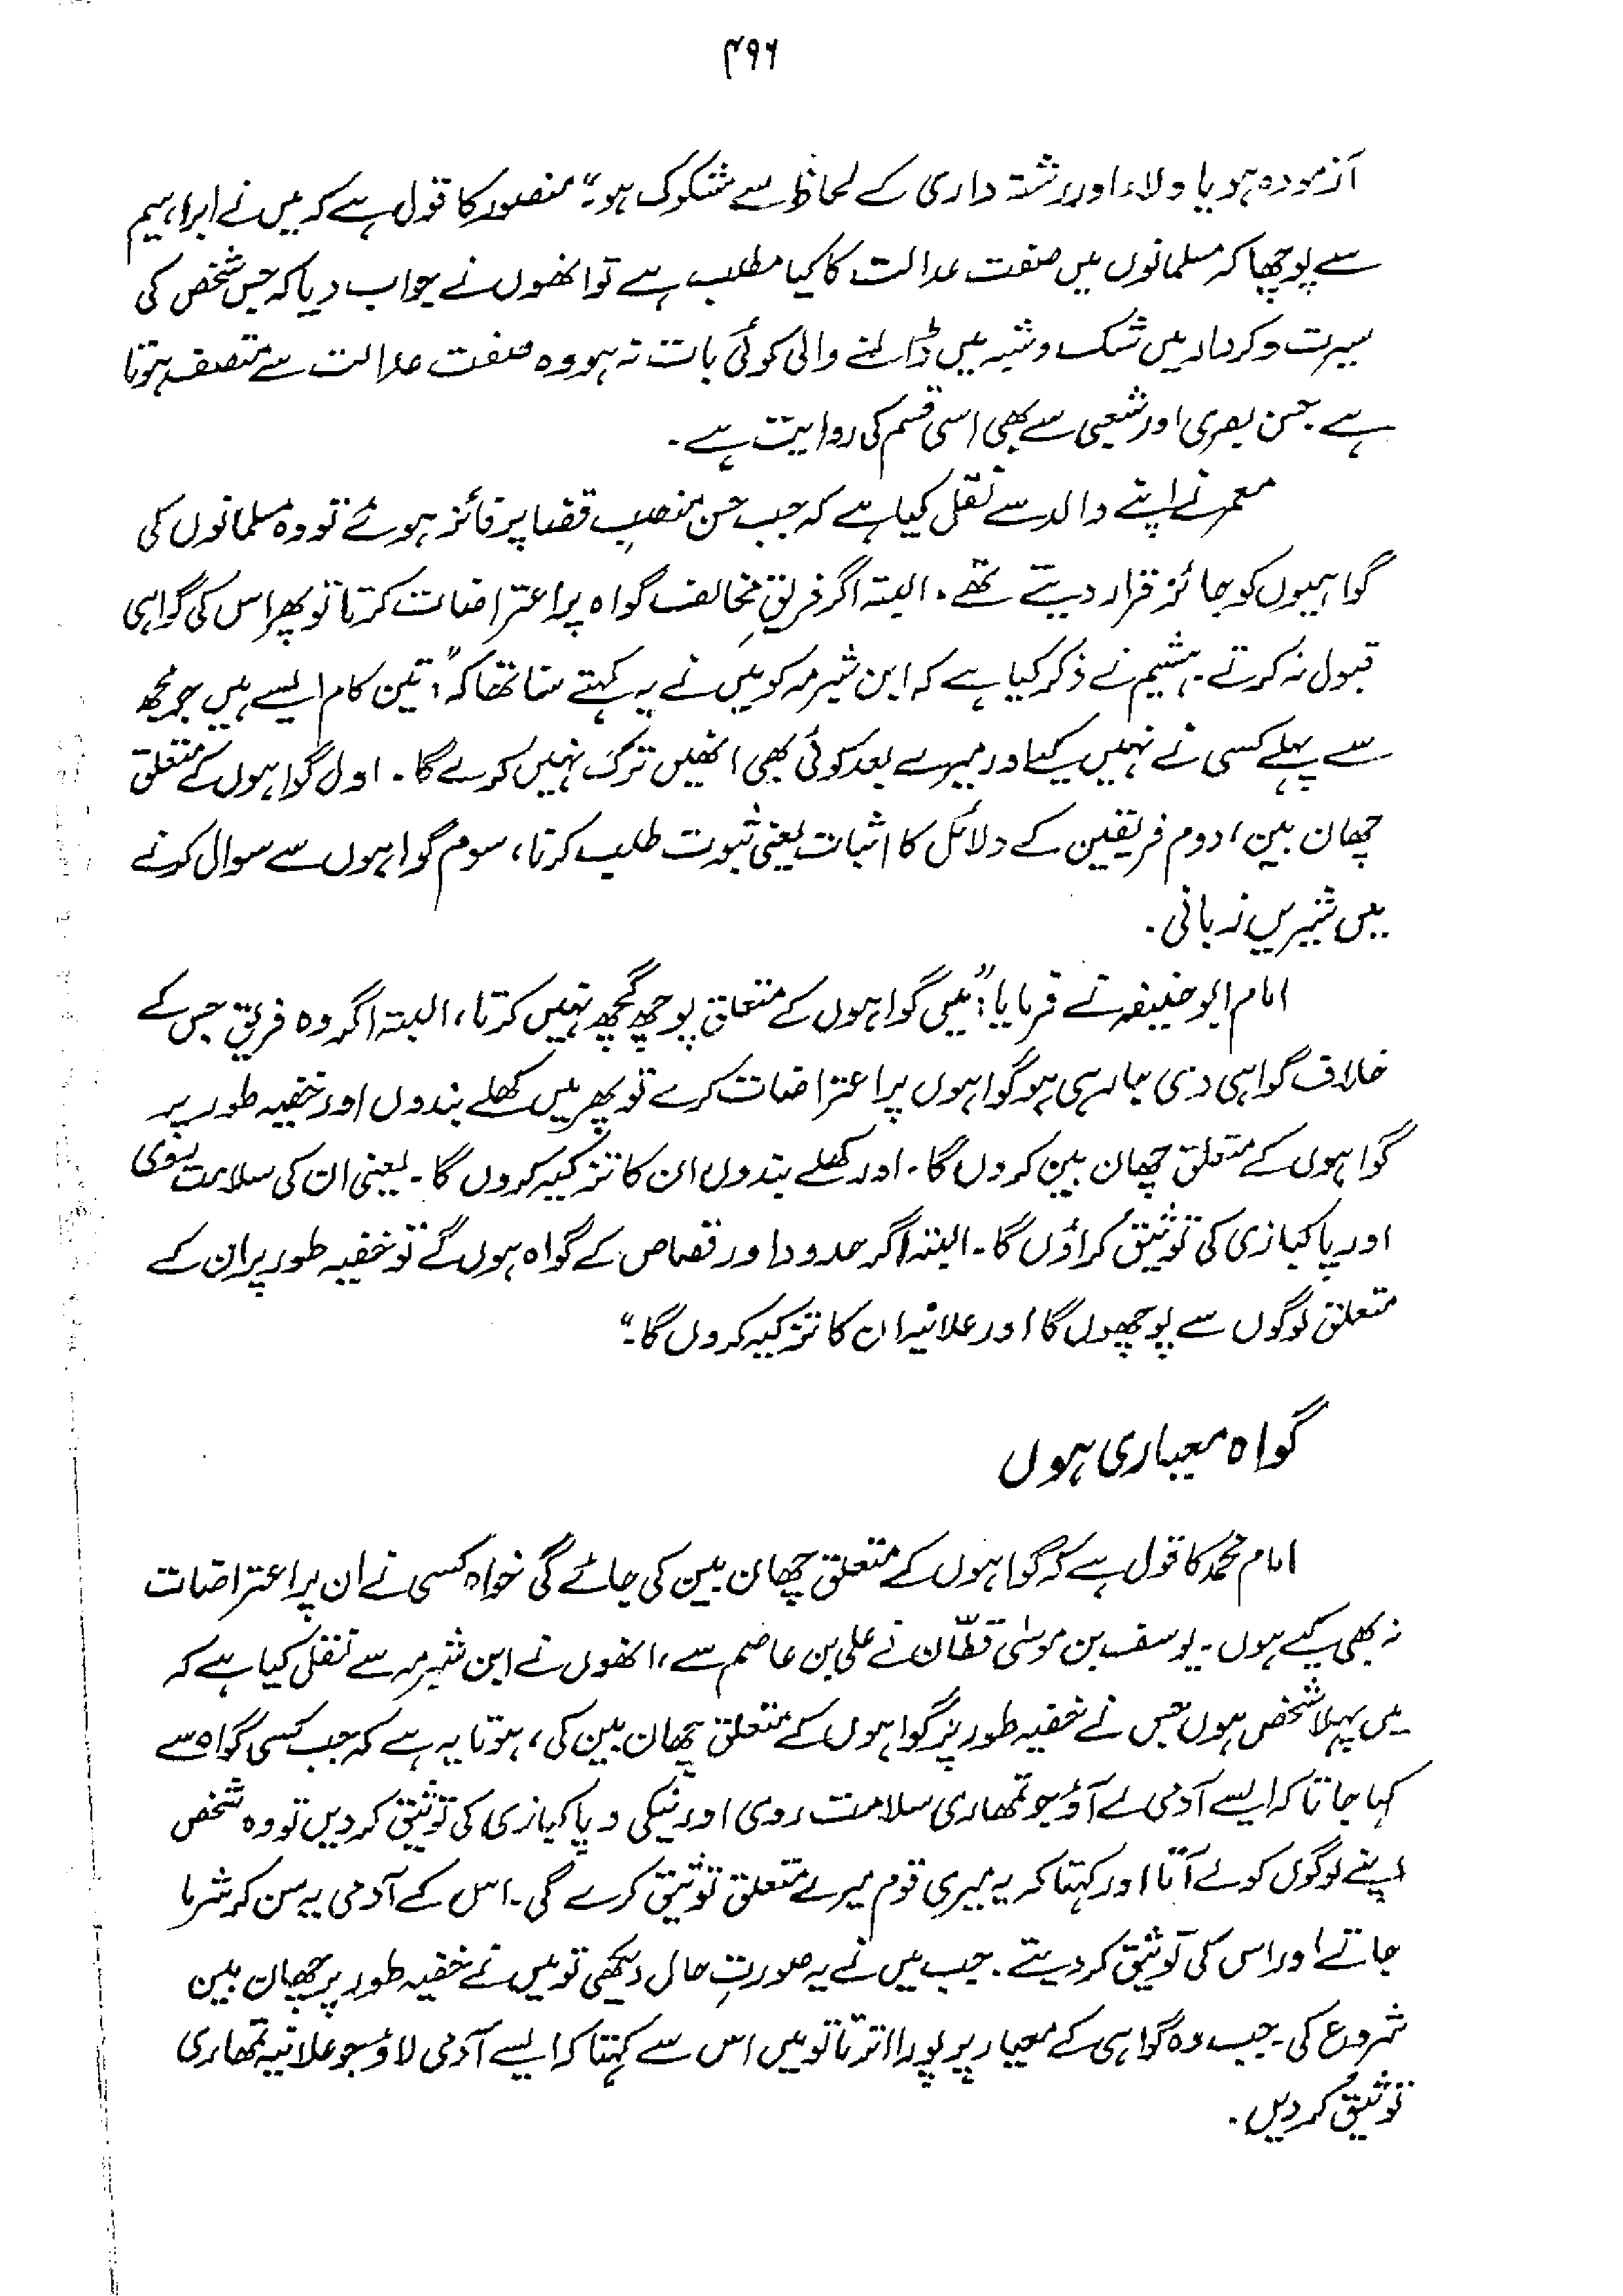 ۴۹۶
آزمودہ ہو یا ولاء اور رشتہ داری کے لحاظ سے مشکوک ہو۔" منصور کا قول ہے کہ میں نے ابراہیم
سے پوچھا کہ مسلمانوں میں صفت عدالت کا کیا مطلب ہے تو انھوں نے جواب دیا کہ جس شخص کی
سیرت و کردار میں شک و شبہ میں ڈالنے والی کوئی بات نہ ہو وہ صفت عدالت سے متصف ہوتا
ہے۔ حسن بصری اور شعبی سے بھی اسی قسم کی روایت ہے۔
معمر نے اپنے والد سے نقل کیا ہے کہ جب حسن منصبِ قضا پر فائز ہوئے تو وہ مسلمانوں کی
گواہیوں کو جائز قرار دیتے تھے۔ البتہ اگر فریقِ مخالف گواہ پر اعتراضات کرتا تو پھر اس کی گواہی
قبول نہ کرتے۔ ہشیم نے ذکر کیا ہے کہ ابن شبرمہ کو میں نے یہ کہتے سنا تھا کہ: "تین کام ایسے ہیں جو مجھ
سے پہلے کسی نے نہیں کیے اور میرے بعد کوئی بھی انھیں ترک نہیں کرے گا۔ اول گواہوں کے متعلق
چھان بین، دوم فریقین کے دلائل کا اثبات یعنی ثبوت طلب کرنا، سوم گواہوں سے سوال کرنے
میں شیریں زبانی۔
امام ابوحنیفہ نے فرمایا: "میں گواہوں کے متعلق پوچھ گچھ نہیں کرتا، البتہ اگر وہ فریق جس کے
خلاف گواہی دی جا رہی ہو گواہوں پر اعتراضات کرے تو پھر میں کھلے بندوں اور خفیہ طور پر
گواہوں کے متعلق چھان بین کروں گا۔ اور کھلے بندوں ان کا تزکیہ کروں گا۔ یعنی ان کی سلامت روی
اور پاکبازی کی توثیق کراؤں گا۔ البتہ اگر حدود اور قصاص کے گواہ ہوں گے تو خفیہ طور پر ان کے
متعلق لوگوں سے پوچھوں گا اور علانیہ ان کا تزکیہ کروں گا۔"
گواہ معیاری ہوں
امام محمد کا قول ہے کہ گواہوں کے متعلق چھان بین کی جائے گی خواہ کسی نے ان پر اعتراضات
نہ بھی کیے ہوں۔ یوسف بن موسیٰ قطّان نے علی بن عاصم سے، انھوں نے ابن شبرمہ سے نقل کیا ہے کہ
میں پہلا شخص ہوں جس نے خفیہ طور پر گواہوں کے متعلق چھان بین کی، ہوتا یہ ہے کہ جب کسی گواہ سے
کہا جاتا کہ ایسے آدمی لے آؤ جو تمھاری سلامت روی اور نیکی و پاکبازی کی توثیق کر دیں تو وہ شخص
اپنے لوگوں کو لے آتا اور کہتا کہ یہ میری قوم میرے متعلق توثیق کرے گی۔ اس کے آدمی یہ سن کر شرما
جاتے اور اس کی توثیق کر دیتے۔ جب میں نے یہ صورتِ حال دیکھی تو میں نے خفیہ طور پر چھان بین
شروع کی۔ جب وہ گواہی کے معیار پر پورا اترتا تو میں اس سے کہتا کہ ایسے آدمی لاؤ جو علانیہ تمھاری
توثیق کر دیں۔